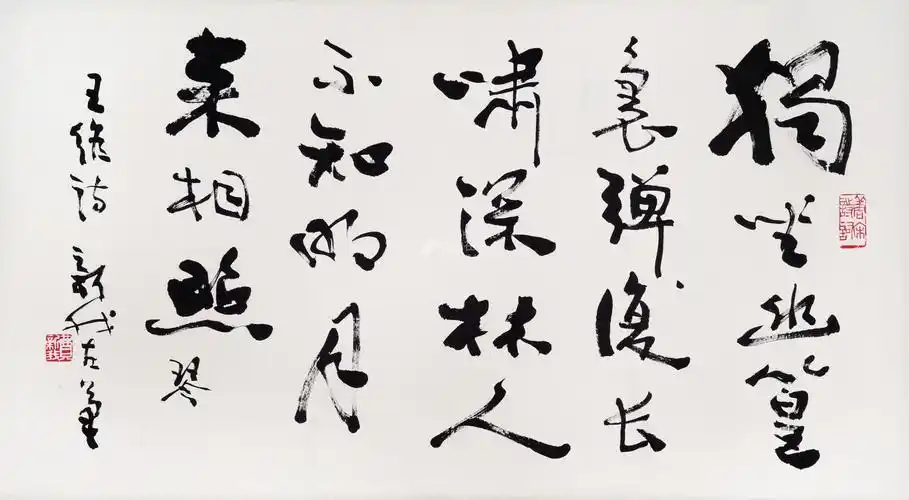 獨坐幽篁
裏彈復长
嘯深林人
不知明月
来相照 琴
王維詩 新我左筆